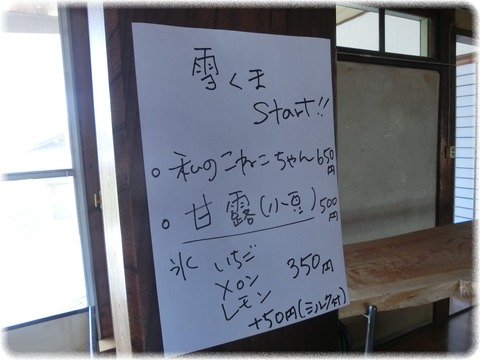 雪くま
Start!!
○私のこねこちゃん650円
○甘露(小豆)500円
氷 いちご
メロン 350円
レモン
+50円(ミルク付)